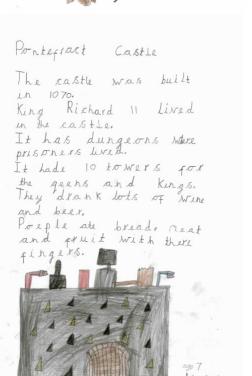 Pontefract Castle
The castle was built
in 1070.
King Richard II Lived
in the castle.
It has dungeons where
prisoners lived.
It hade 10 towers for
the qeens and Kings.
They drank lots of wine
and beer.
Poeple ate bread, meat
and fruit with there
fingers.
age 7